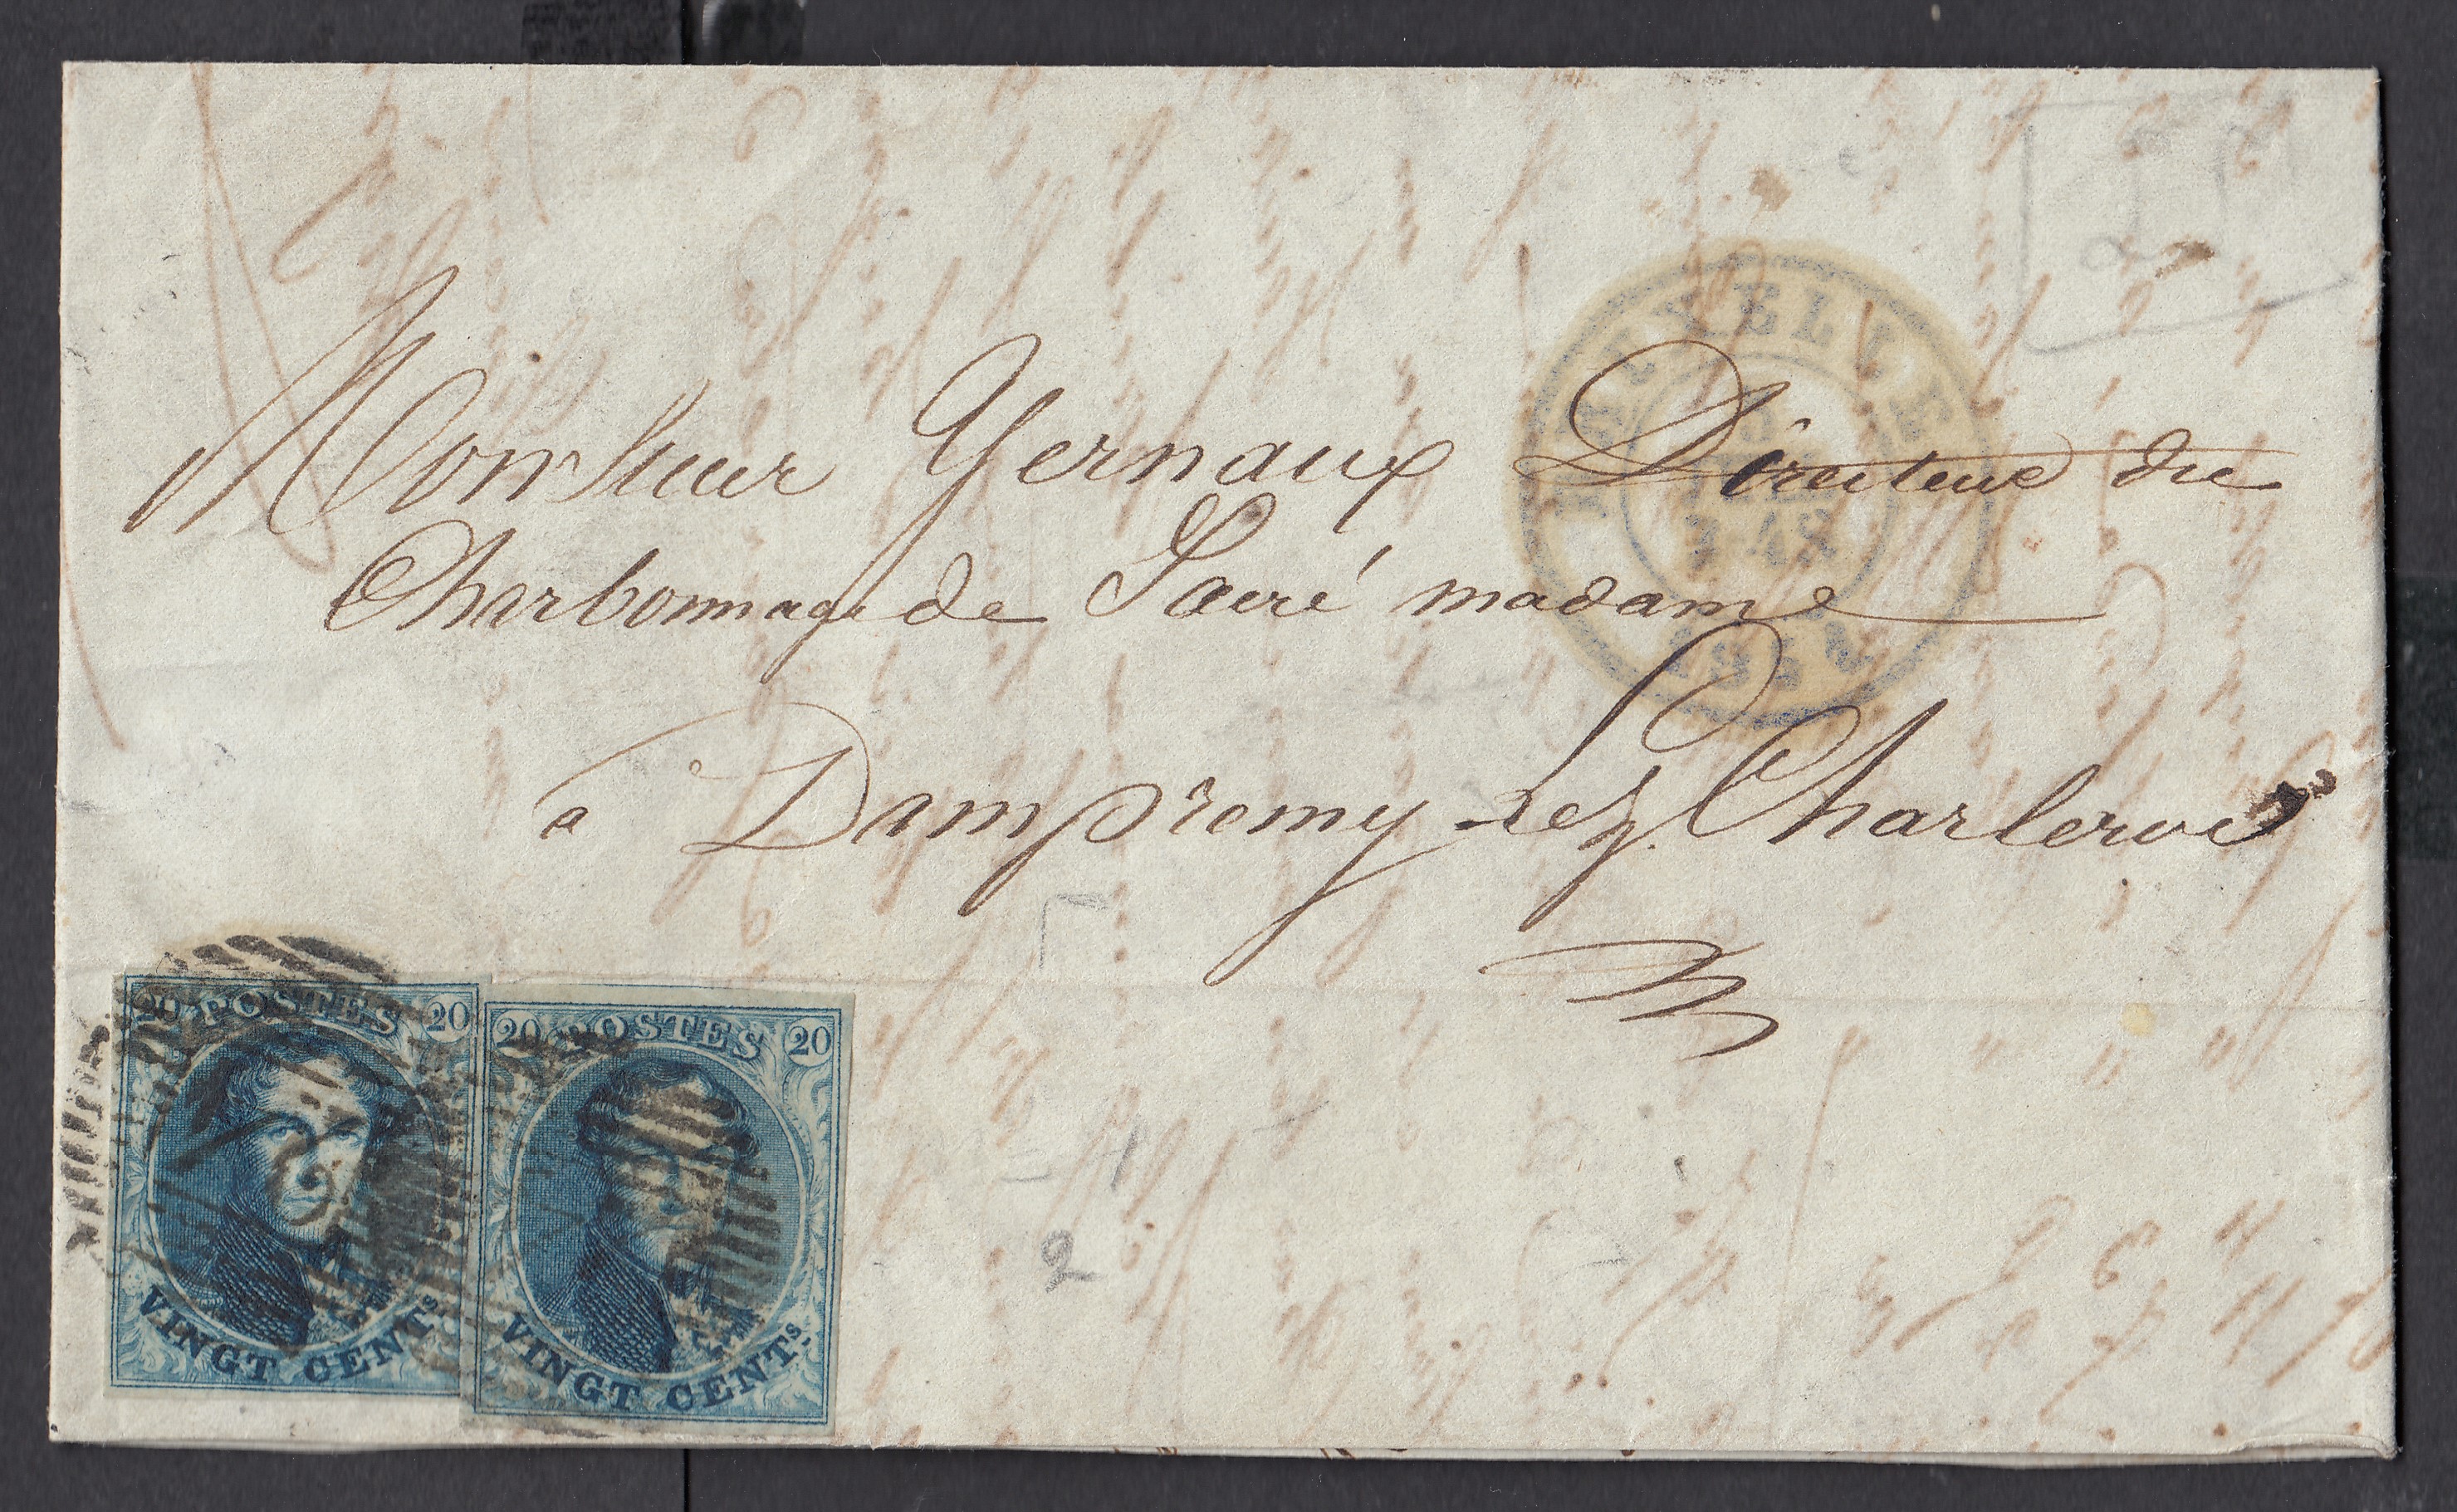 BRUXELLES
Monsieur Gernaux Directeur du
Charbonnage de Sacré madame
à Dampremy Lez Charleroi
20 POSTES 20
VINGT CENTS
20 POSTES 20
VINGT CENTS.
2